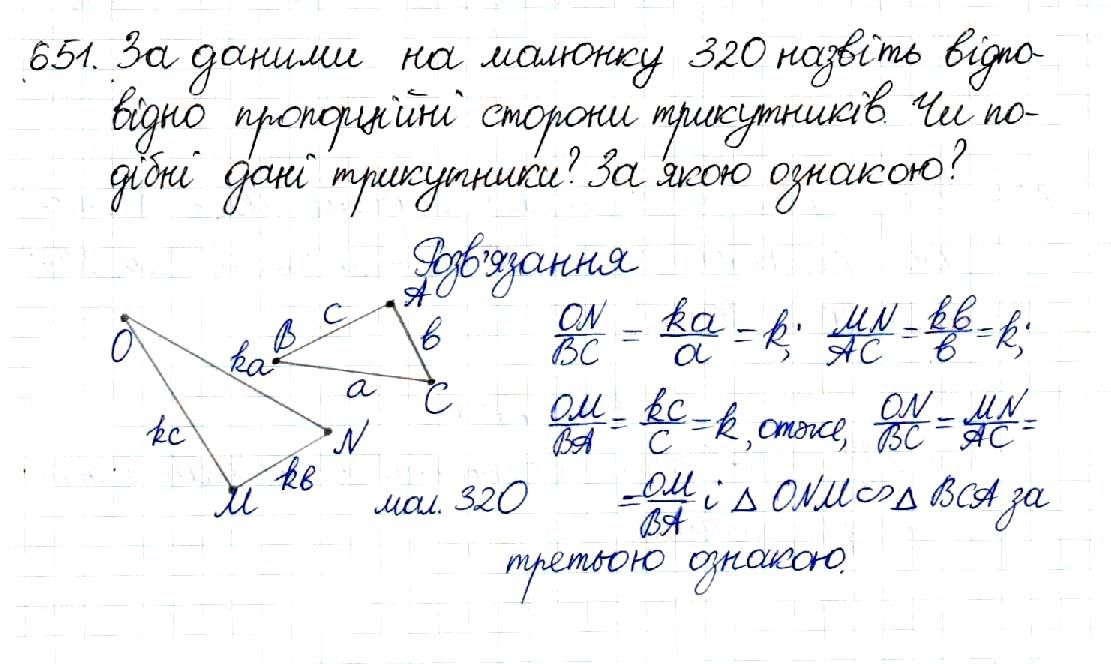 651. За даними на малюнку 320 назвіть відпо-
відно пропорційні сторони трикутників. Чи по-
дібні дані трикутники? За якою ознакою?
Розв'язання
O
ka
B
c
A
в
a
C
kc
N
kв
M
мал. 320
ON/BC = ka/a = k; MN/AC = kв/в = k;
OM/BA = kc/c = k, отже, ON/BC = MN/AC =
= OM/BA і △ ONM ∽ △ BCA за
третьою ознакою.